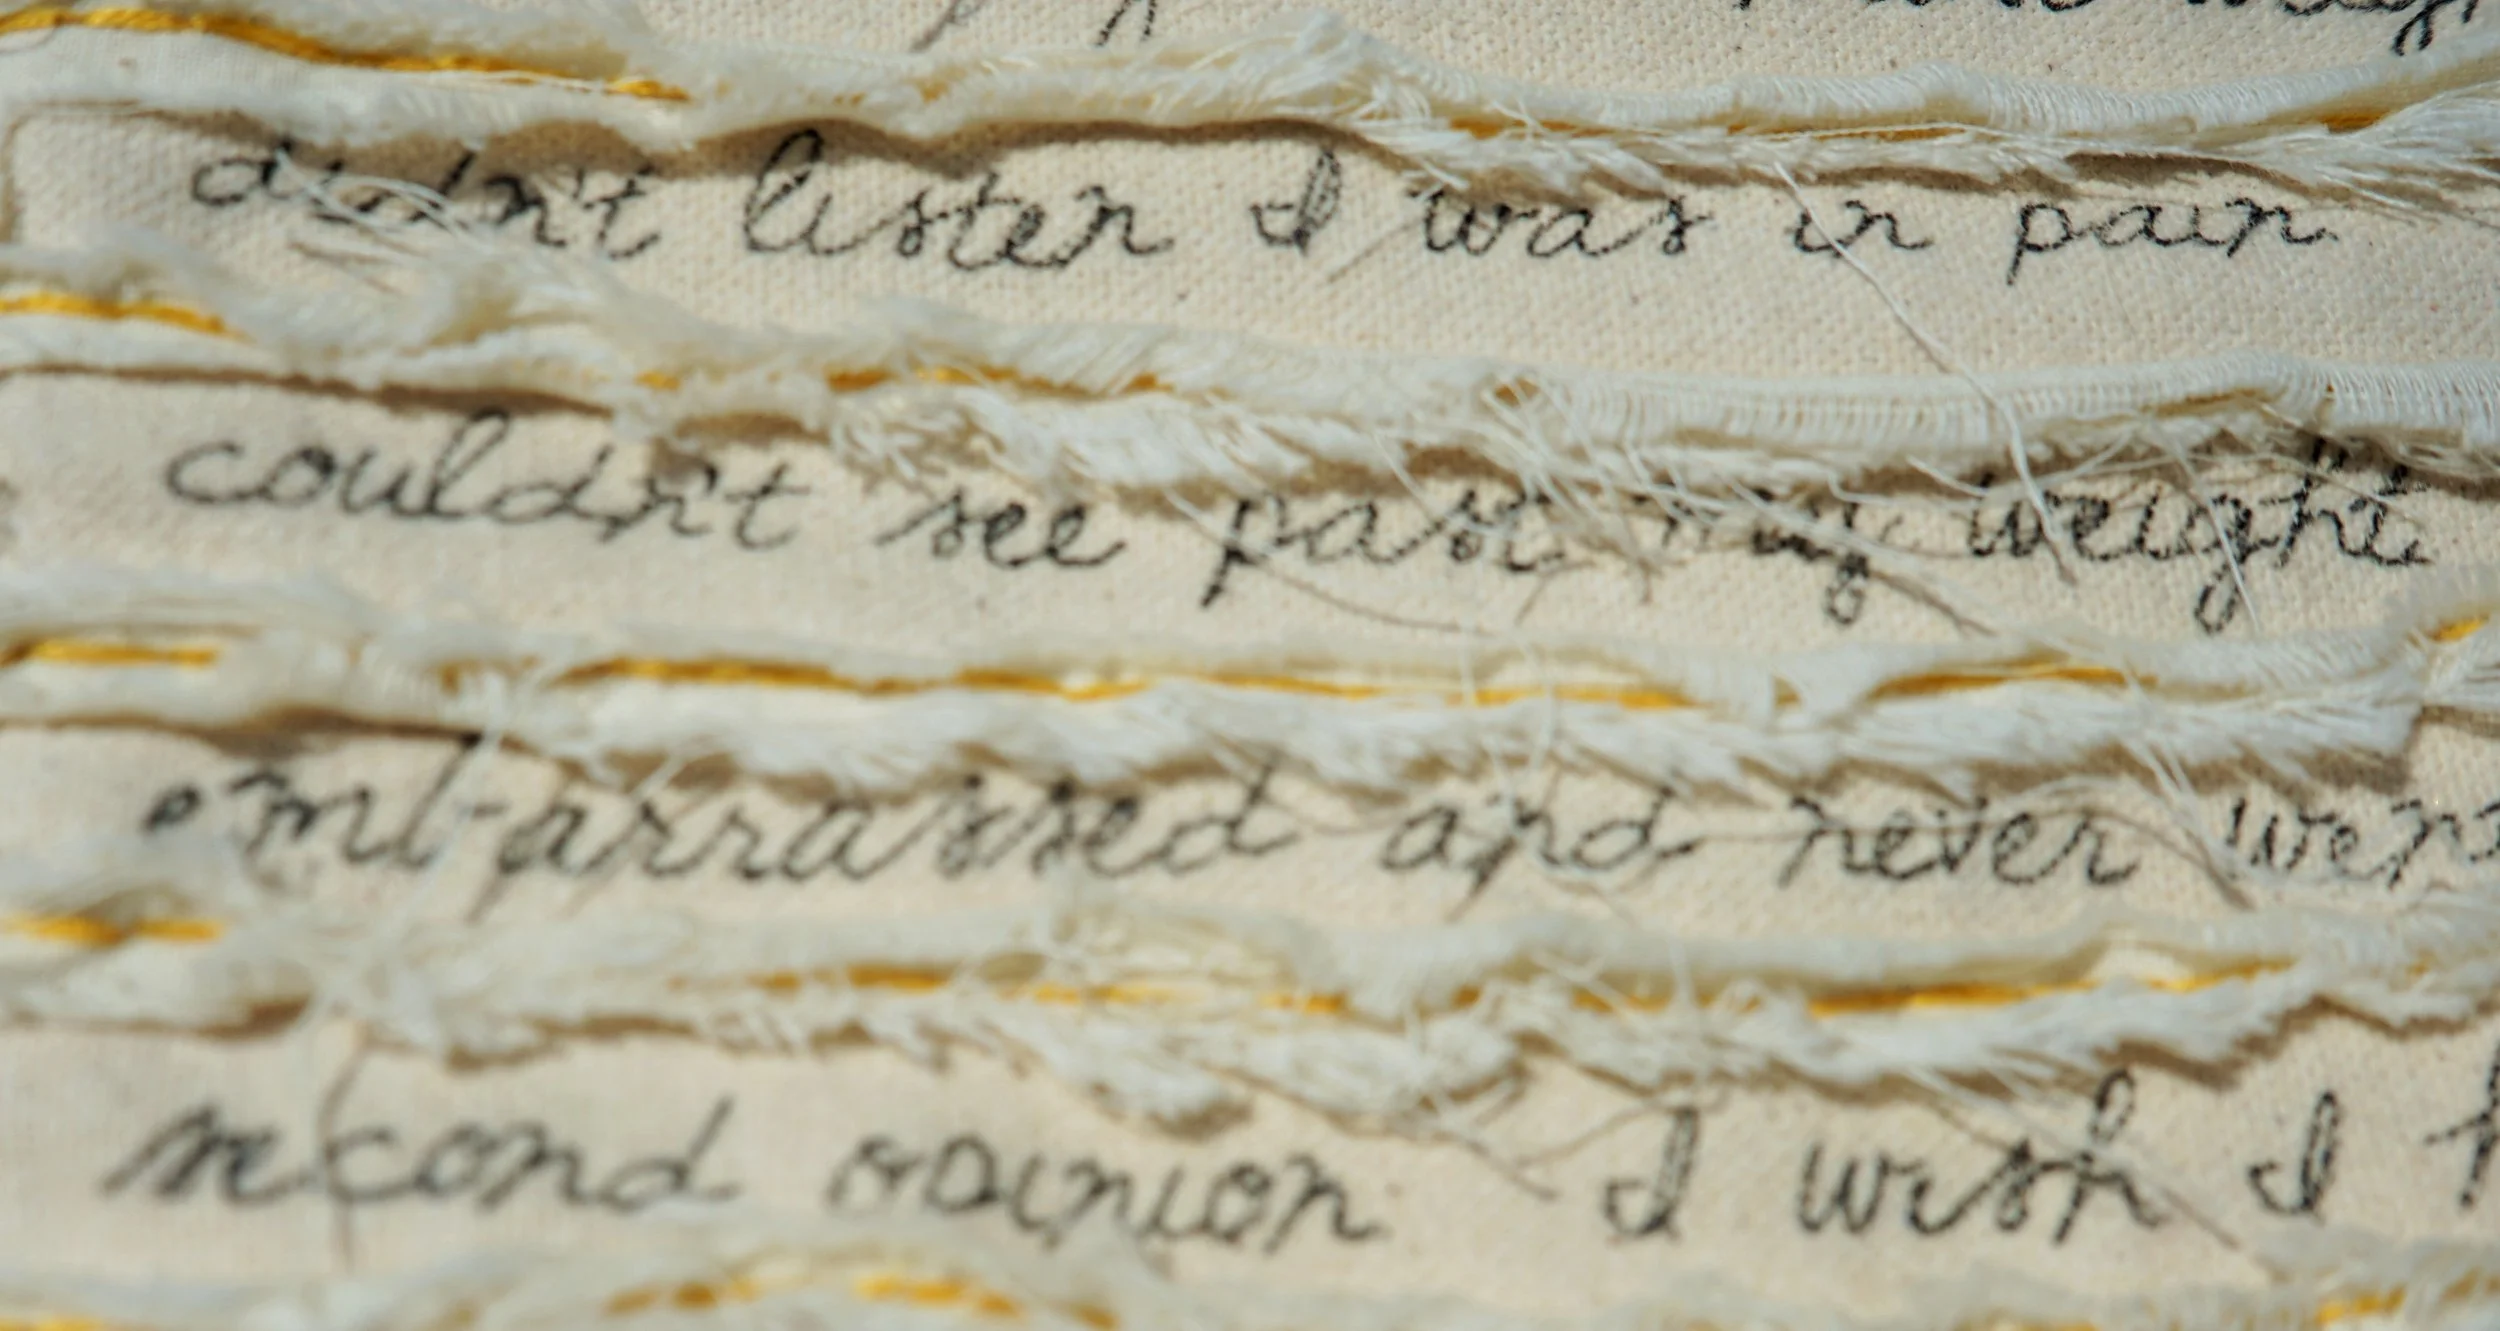 didn't listen I was in pain
couldn't see past my weight
embarrassed and never went
second opinion I wish I